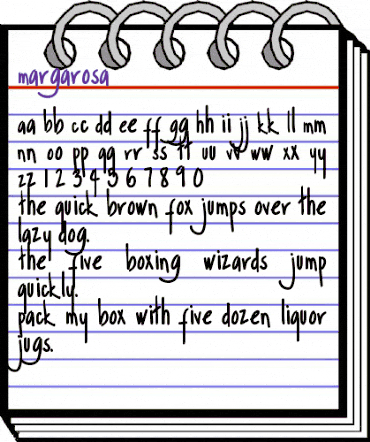 margarosa
aa bb cc dd ee ff gg hh ii jj kk ll mm
nn oo pp qq rr ss tt uu vv ww xx yy
zz 1 2 3 4 5 6 7 8 9 0
the quick brown fox jumps over the
lazy dog.
the five boxing wizards jump
quickly.
pack my box with five dozen liquor
jugs.